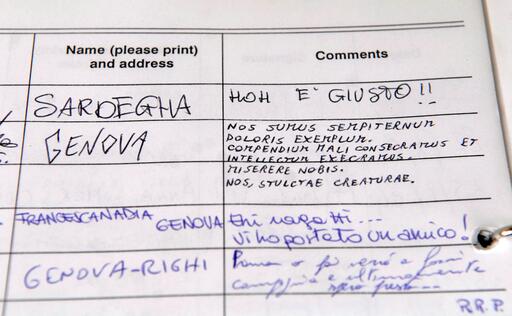 Name (please print)
and address
Comments
SARDEGNA
NON E' GIUSTO!!
GENOVA
NOS SUMUS SEMPITERNUM
DOLORIS EXEMPLUM.
COMPENDIUM MALI CONSECRAMUS ET
INTELLECTUM EXECRAMUS.
MISERERE NOBIS.
NOS, STULTAE CREATURAE.
FRANCESCA NADIA GENOVA
Ehi ragatti...
vi ho portato un amico!
GENOVA-RIGHI
Prima o poi verrò a farvi
compagnia e ultimamente
spero presto...
R.R.P.